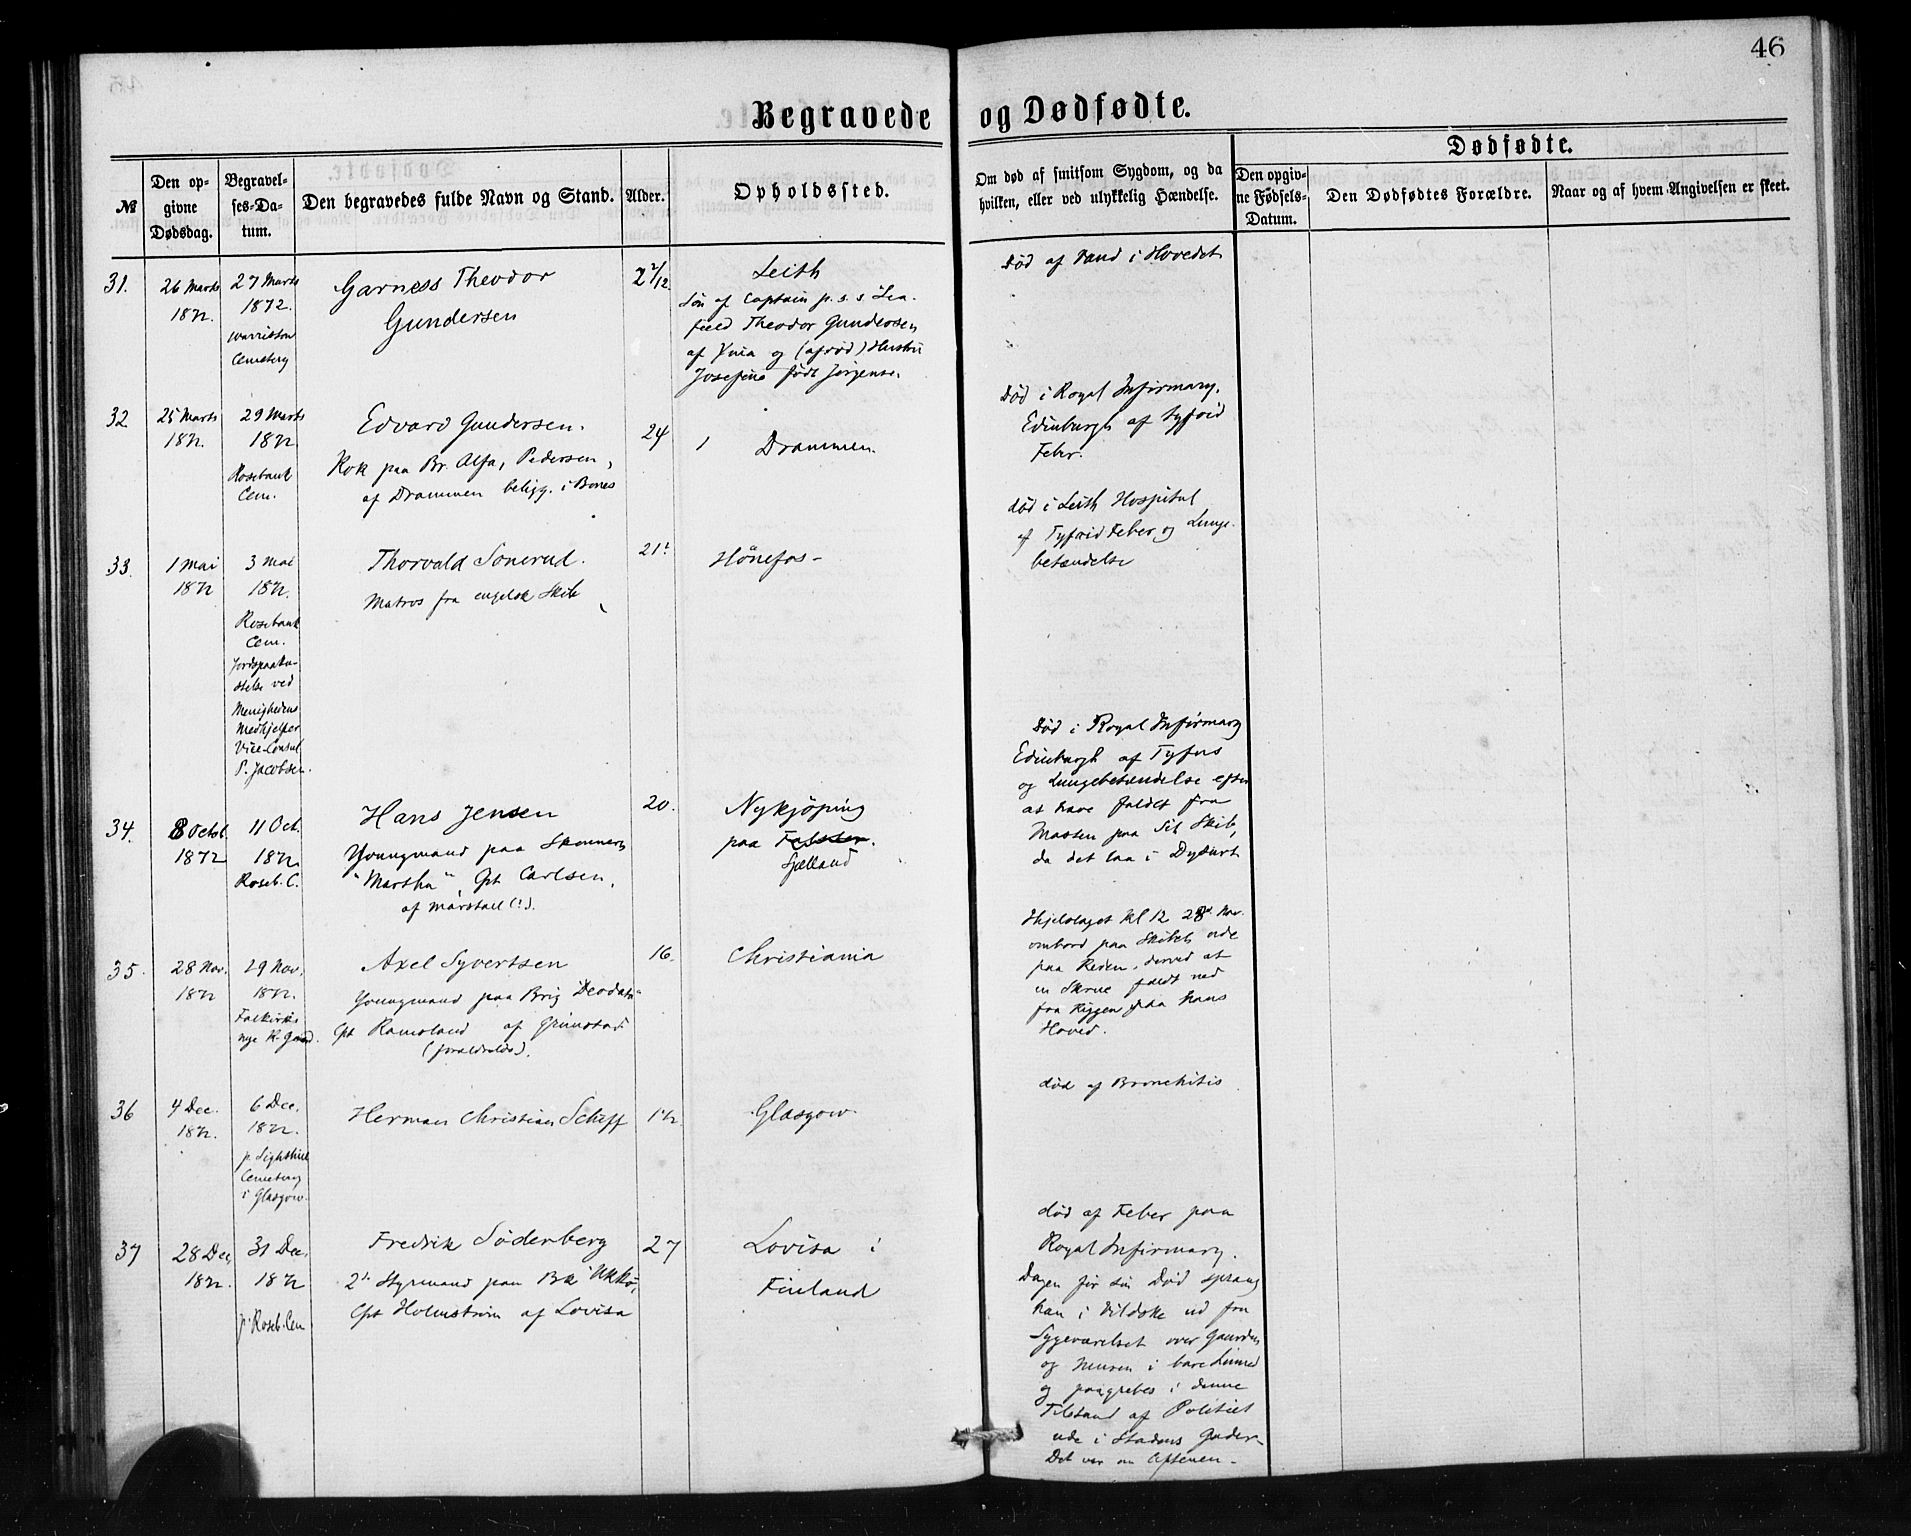 46
Begravede og Dødfødte.
№
Den opgivne Dødsdag.
Begravelses-Datum.
Den begravedes fulde Navn og Stand.
Alder.
Opholdssted.
Om død af smitsom Sygdom, og da hvilken, eller ved ulykkelig Hændelse.
Dødfødte.
Den opgivne Fødsels-Datum.
Den Dødfødtes Forældre.
Naar og af hvem Angivelsen er skeet.
31.
26 Marts
1872.
27 Marts
1872.
Warriston
Cemetery
Garness Theodor
Gundersen
2 2/12
Leith
Søn af Captain p. s. s Lea-
field Theodor Gundersen
af og (afdød) Hustru
Josefine født Jørgensen
Død af Vand i Hovedet
32
25 Marts
1872.
29 Marts
1872
Rosebank
Cem.
Edvard Gundersen.
Kok paa Br. Alfa, Pedersen,
af Drammen beligg. i Bones
24
Drammen.
Død i Royal Infirmary.
Edinburgh af Tyfoid
Feber.
33.
1 Mai
1872
3 Mai
1872.
Rosebank
Cem.
Jordspaaka-
stelse ved
Menighedens
Medhjelper
Vice-Consul
P. Jacobsen.
Thorvald Sonerud.
Matros fra engelsk Skib
21
Hönefos-
død i Leith Hospital
af Tyfoid Feber og Lunge-
betændelse
34.
8 Octob.
1872
11 Oct.
1872
Roseb. C.
Hans Jensen
Youngmand paa Skonnert
"Martha", Cpt Carlsen,
af Marstall (!).
20.
Nykjöping
paa Falster.
Sjælland
Død i Royal Infirmary
Edinburgh af Tyfus
og Lungebetændelse efter
at have faldet fra
Masten paa Sit Skib,
da det laa i Dysart
35.
28 Nov.
1872
29 Nov.
1872.
Falkirks
nye K. Gaard.
Axel Syvertsen
Youngmand paa Brig Deodata
Cpt Ramsland af Grimstad
16.
Christiania
Ihjelslaget Kl 12 28de Nov.
ombord paa Skibet ude
paa Reden, derved at
en Skrue faldt ned
fra Riggen paa hans
Hoved.
36
4 Dec.
1872.
6 Dec.
1872.
p. Sighthill
Cemetery
i Glasgow.
Herman Christian Schiff
Glasgow.
død af Bronchitis
37
28 Dec,
1872.
31 Dec.
1872
p. Roseb. Cem
Fredrik Söderberg
2n Styrmand paa Bk "Ukko",
Cpt Holmström af Lovisa
27
Lovisa i
Finland
død af Feber paa
Royal Infirmary.
Dagen før sin Død sprang
han i Vildske ud fra
Sygeværelset over Gaarden
og Muren i bare Linned
og paagrebes i denne
Tilstand af Politiet
ude i Stadens Gader-
Det var om Aftenen-